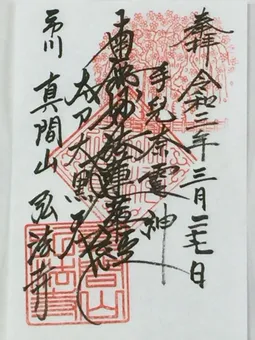 奉拝 令和三年三月二七日
手兒奈霊神
南無妙法蓮華経
太刀大黒尊天
市川 真間山 弘法寺